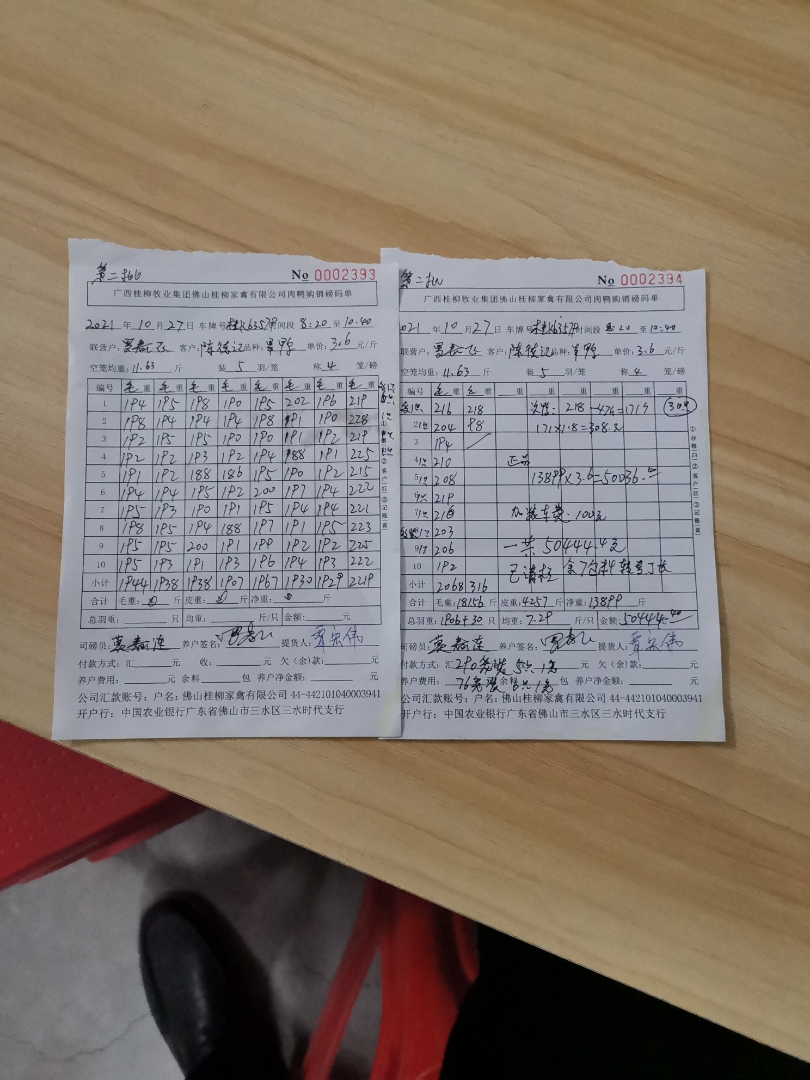 第二批
No 0002393
广西桂柳牧业集团佛山桂柳家禽有限公司肉鸭购销磅码单
2021年10月27日 车牌号 时间段 8:20至10:40
联营户： 客户：陈 品种： 鸭 单价：3.6元/斤
空笼均重：11.63斤 装5羽/笼 称4笼/磅
编号 毛重 毛重 毛重 毛重 毛重 毛重 毛重 毛重
1 194 195 198 190 195 202 196 219
2 198 194 194 194 198 191 190 228
3 192 195 195 190 190 191 192 219
4 192 192 193 192 194 188 191 225
5 191 192 188 186 195 190 192 215
6 194 194 195 192 200 197 194 222
7 195 193 190 191 195 194 194 221
8 198 195 194 188 197 191 195 223
9 195 195 200 191 199 192 192 225
10 195 193 191 193 196 194 193 222
小计 1944 1938 1938 1907 1967 1930 1929 2219
合计 毛重： 斤 皮重： 斤 净重： 斤
总羽重： 只 均重： 斤/只 金额： 元
司磅员： 养户签名： 提货人：
付款方式：汇 元 收： 元 欠（余）款： 元
养户费用： 元 余料 包 养户净金额： 元
公司汇款账号：户名：佛山桂柳家禽有限公司 44-442101040003941
开户行：中国农业银行广东省佛山市三水区三水时代支行
①存根（白）②客户（红）③记账（黄）
第二
No 0002394
广西桂柳牧业集团佛山桂柳家禽有限公司肉鸭购销磅码单
2021年10月27日 车牌号 时间段 8:20至10:40
联营户： 客户：陈 品种： 鸭 单价：3.6元/斤
空笼均重：11.63斤 装5羽/笼 称4笼/磅
编号 毛重 毛重 重 重 重 重 重 重
216 218 次鸭：218-47=171斤 30只
2 204 98 171×1.8=308.
3 194
4 210 正品
5 208 13899×3.6=50036.
219
7 216 加装车费：100元
203
9 206 一共50444.4元
10 192 已请 余7包料转
小计 2068 316
合计 毛重：18156斤 皮重：4257斤 净重：13899斤
总羽重：1906+30只 均重：7.29斤/只 金额：50444.40
司磅员： 养户签名： 提货人：
付款方式：汇 元 欠（余）款： 元
290笼装5只
养户费用： 余料 包 养户净金额： 元
76笼装6只
公司汇款账号：户名：佛山桂柳家禽有限公司 44-442101040003941
开户行：中国农业银行广东省佛山市三水区三水时代支行
①存根（白）②客户（红）③记账（黄）